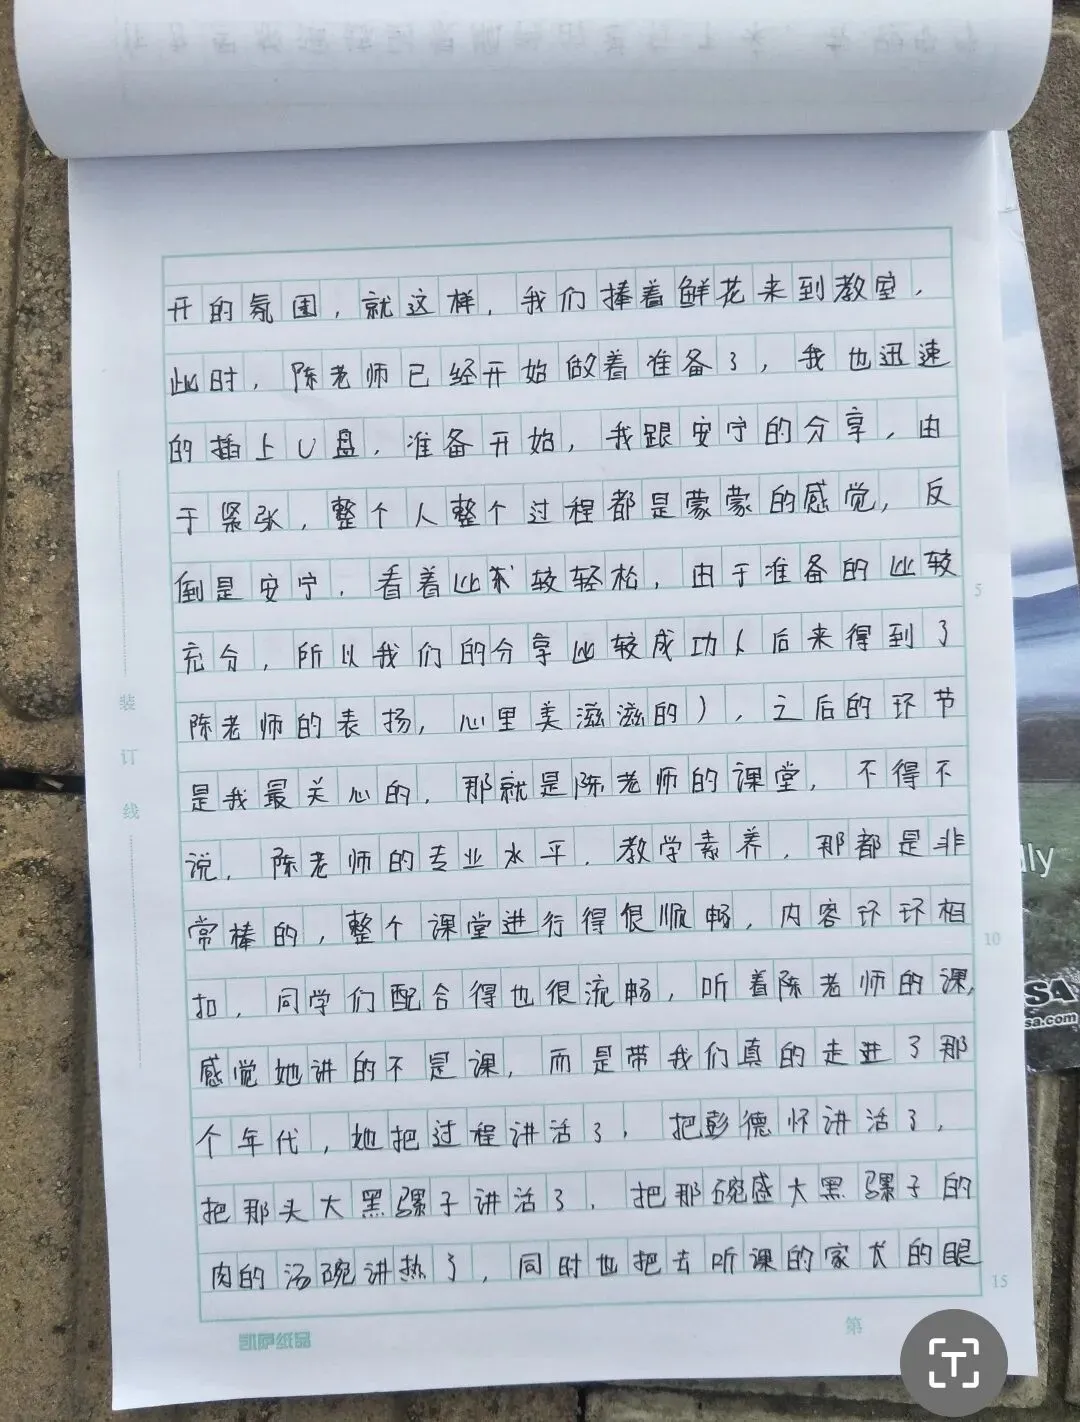 开的氛围，就这样，我们捧着鲜花来到教室，
此时，陈老师已经开始做着准备了，我也迅速
的插上U盘，准备开始，我跟安宁的分享，由
于紧张，整个人整个过程都是蒙蒙的感觉，反
倒是安宁，看着比较轻松，由于准备的比较
充分，所以我们的分享比较成功（后来得到了
陈老师的表扬，心里美滋滋的），之后的环节
是我最关心的，那就是陈老师的课堂，不得不
说，陈老师的专业水平，教学素养，那都是非
常棒的，整个课堂进行得很顺畅，内容环环相
扣，同学们配合得也很流畅，听着陈老师的课，
感觉她讲的不是课，而是带我们真的走进了那
个年代，她把过程讲活了，把彭德怀讲活了，
把那头大黑骡子讲活了，把那碗盛大黑骡子的
肉的汤碗讲热了，同时也把去听课的家长的眼
装
订
线
5
10
15
凯萨纸品
第
lly
SA
sa.com
T